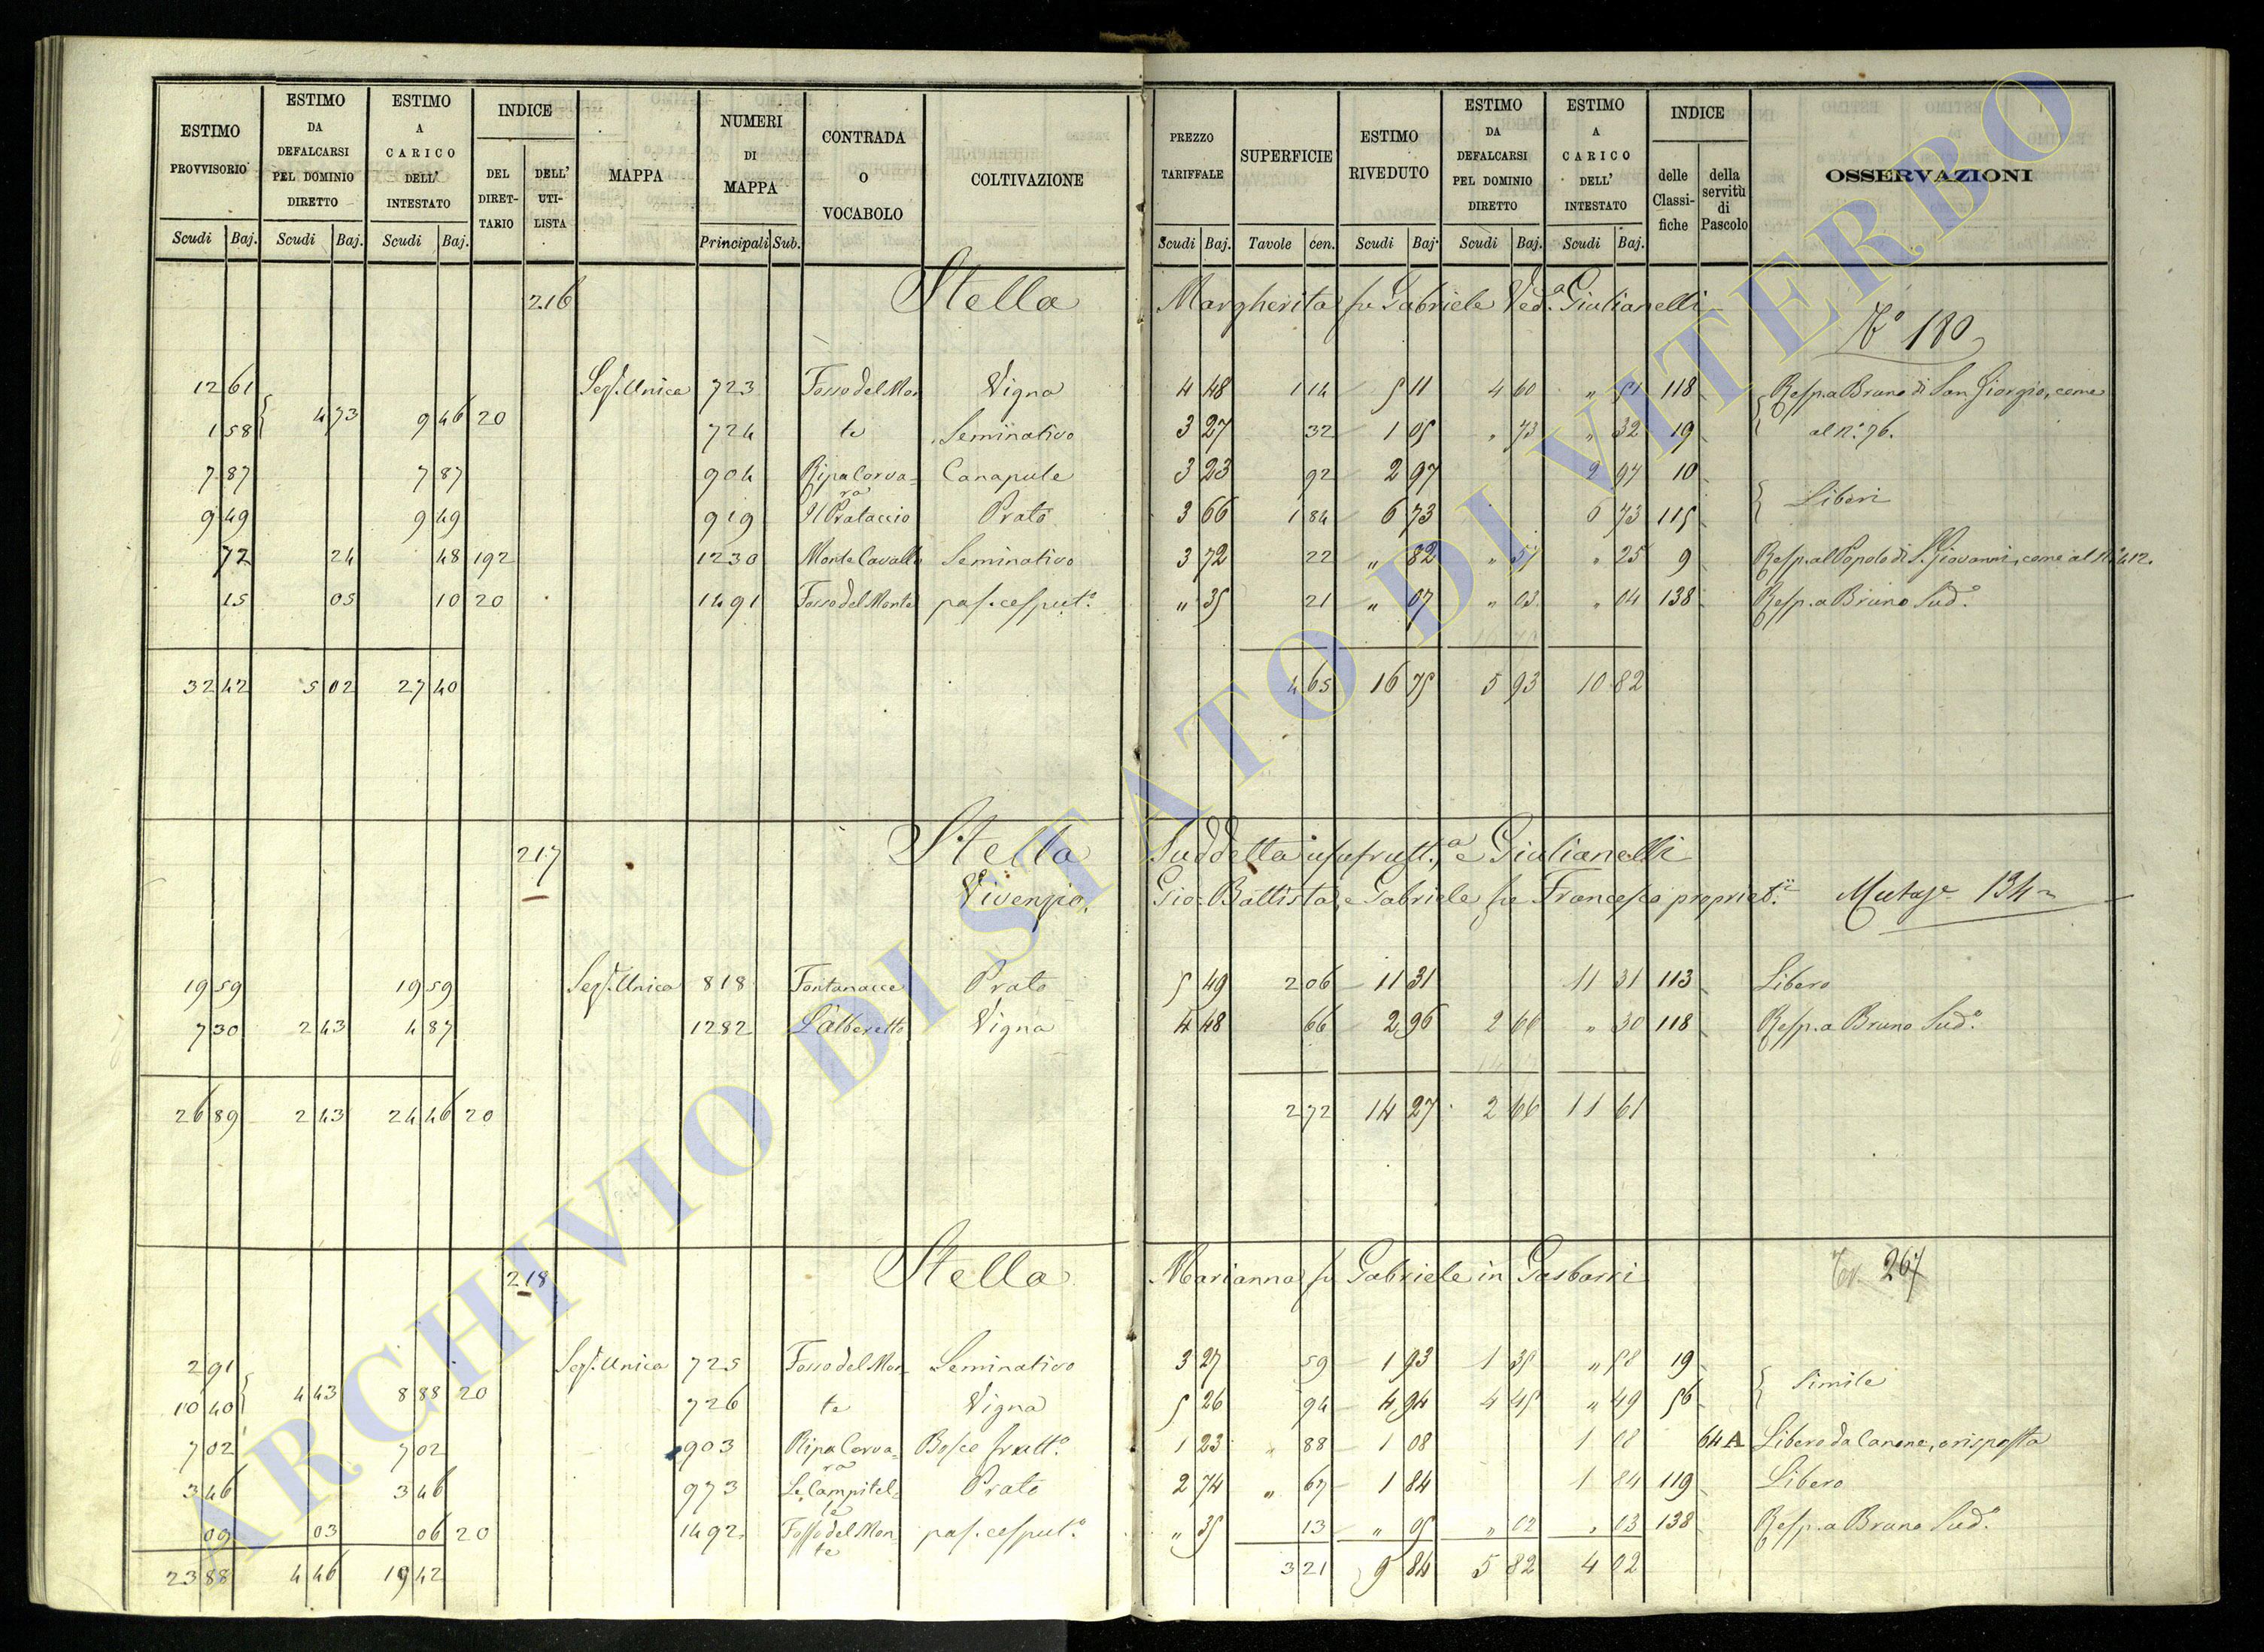 ESTIMO PROVVISORIO | ESTIMO DA DEFALCARSI PEL DOMINIO DIRETTO | ESTIMO A CARICO DELL' INTESTATO | INDICE DEL DIRETTARIO | DELL' UTILISTA | MAPPA | NUMERI DI MAPPA | CONTRADA O VOCABOLO | COLTIVAZIONE | PREZZO TARIFFALE | SUPERFICIE | ESTIMO RIVEDUTO | ESTIMO DA DEFALCARSI PEL DOMINIO DIRETTO | ESTIMO A CARICO DELL' INTESTATO | INDICE delle Classifiche | della servitù di Pascolo | OSSERVAZIONI
Scudi Baj. | Scudi Baj. | Scudi Baj. | Principali Sub. | Scudi Baj. | Tavole cen. | Scudi Baj. | Scudi Baj. | Scudi Baj.
216 Stella Margherita fu Gabriele Ved.a Giulianelli
N.o 180
12 61 Sez.e Unica 723 Fosso del Mon Vigna 4 48 1 14 5 11 4 60 " 51 118 Resp.a Bruno di San Giorgio, come
4 73 9 46 20
1 58 724 te Seminativo 3 27 32 1 05 " 73 " 32 19 al N.o 76.
7 87 7 87 904 Ripa Corva= Canapule 3 23 92 2 97 2 97 10
ra Liberi
9 49 9 49 919 Il Prataccio Prato 3 66 1 84 6 73 6 73 115
72 24 48 192 1230 Monte Cavallo Seminativo 3 72 22 " 82 " 57 " 25 9 Resp. al Popolo di S. Giovanni, come al N.o 412.
15 05 10 20 1491 Fosso del Monte pas. cesput.o " 35 21 " 07 " 03 " 04 138 Resp. a Bruno Sud.o
32 42 5 02 27 40 4 65 16 75 5 93 10 82
217 Stella Suddetta usufrutt.a e Giulianelli
Vivenzio, Gio: Battista, e Gabriele fu Francesco propriet.ii
134
19 59 19 59 Sez.e Unica 818 Fontanacce Prato 5 49 2 06 11 31 11 31 113 Libero
7 30 2 43 4 87 1282 L'alberetto Vigna 4 48 66 2 96 2 66 " 30 118 Resp. a Bruno Sud.o
26 89 2 43 24 46 20 2 72 14 27 2 66 11 61
218 Stella Marianna fu Gabriele in Gasbarri
267
2 91 Sez.e Unica 725 Fosso del Mon Seminativo 3 27 59 1 93 1 35 " 58 19
4 43 8 88 20 Simile
10 40 726 te Vigna 5 26 94 4 94 4 45 " 49 56
7 02 7 02 903 Ripa Corva= Bosco frutt.o 1 23 " 88 1 08 1 08 64 A Libero da Canone, o risposta
ra
3 46 3 46 973 Le Campitel= Prato 2 74 " 67 1 84 1 84 119 Libero
le
09 03 06 20 1492 Fosso del Mon= pas. cesput.o " 35 13 " 05 " 02 " 03 138 Resp. a Bruno Sud.o
te
23 88 4 46 19 42 3 21 9 84 5 82 4 02
ARCHIVIO DI STATO DI VITERBO